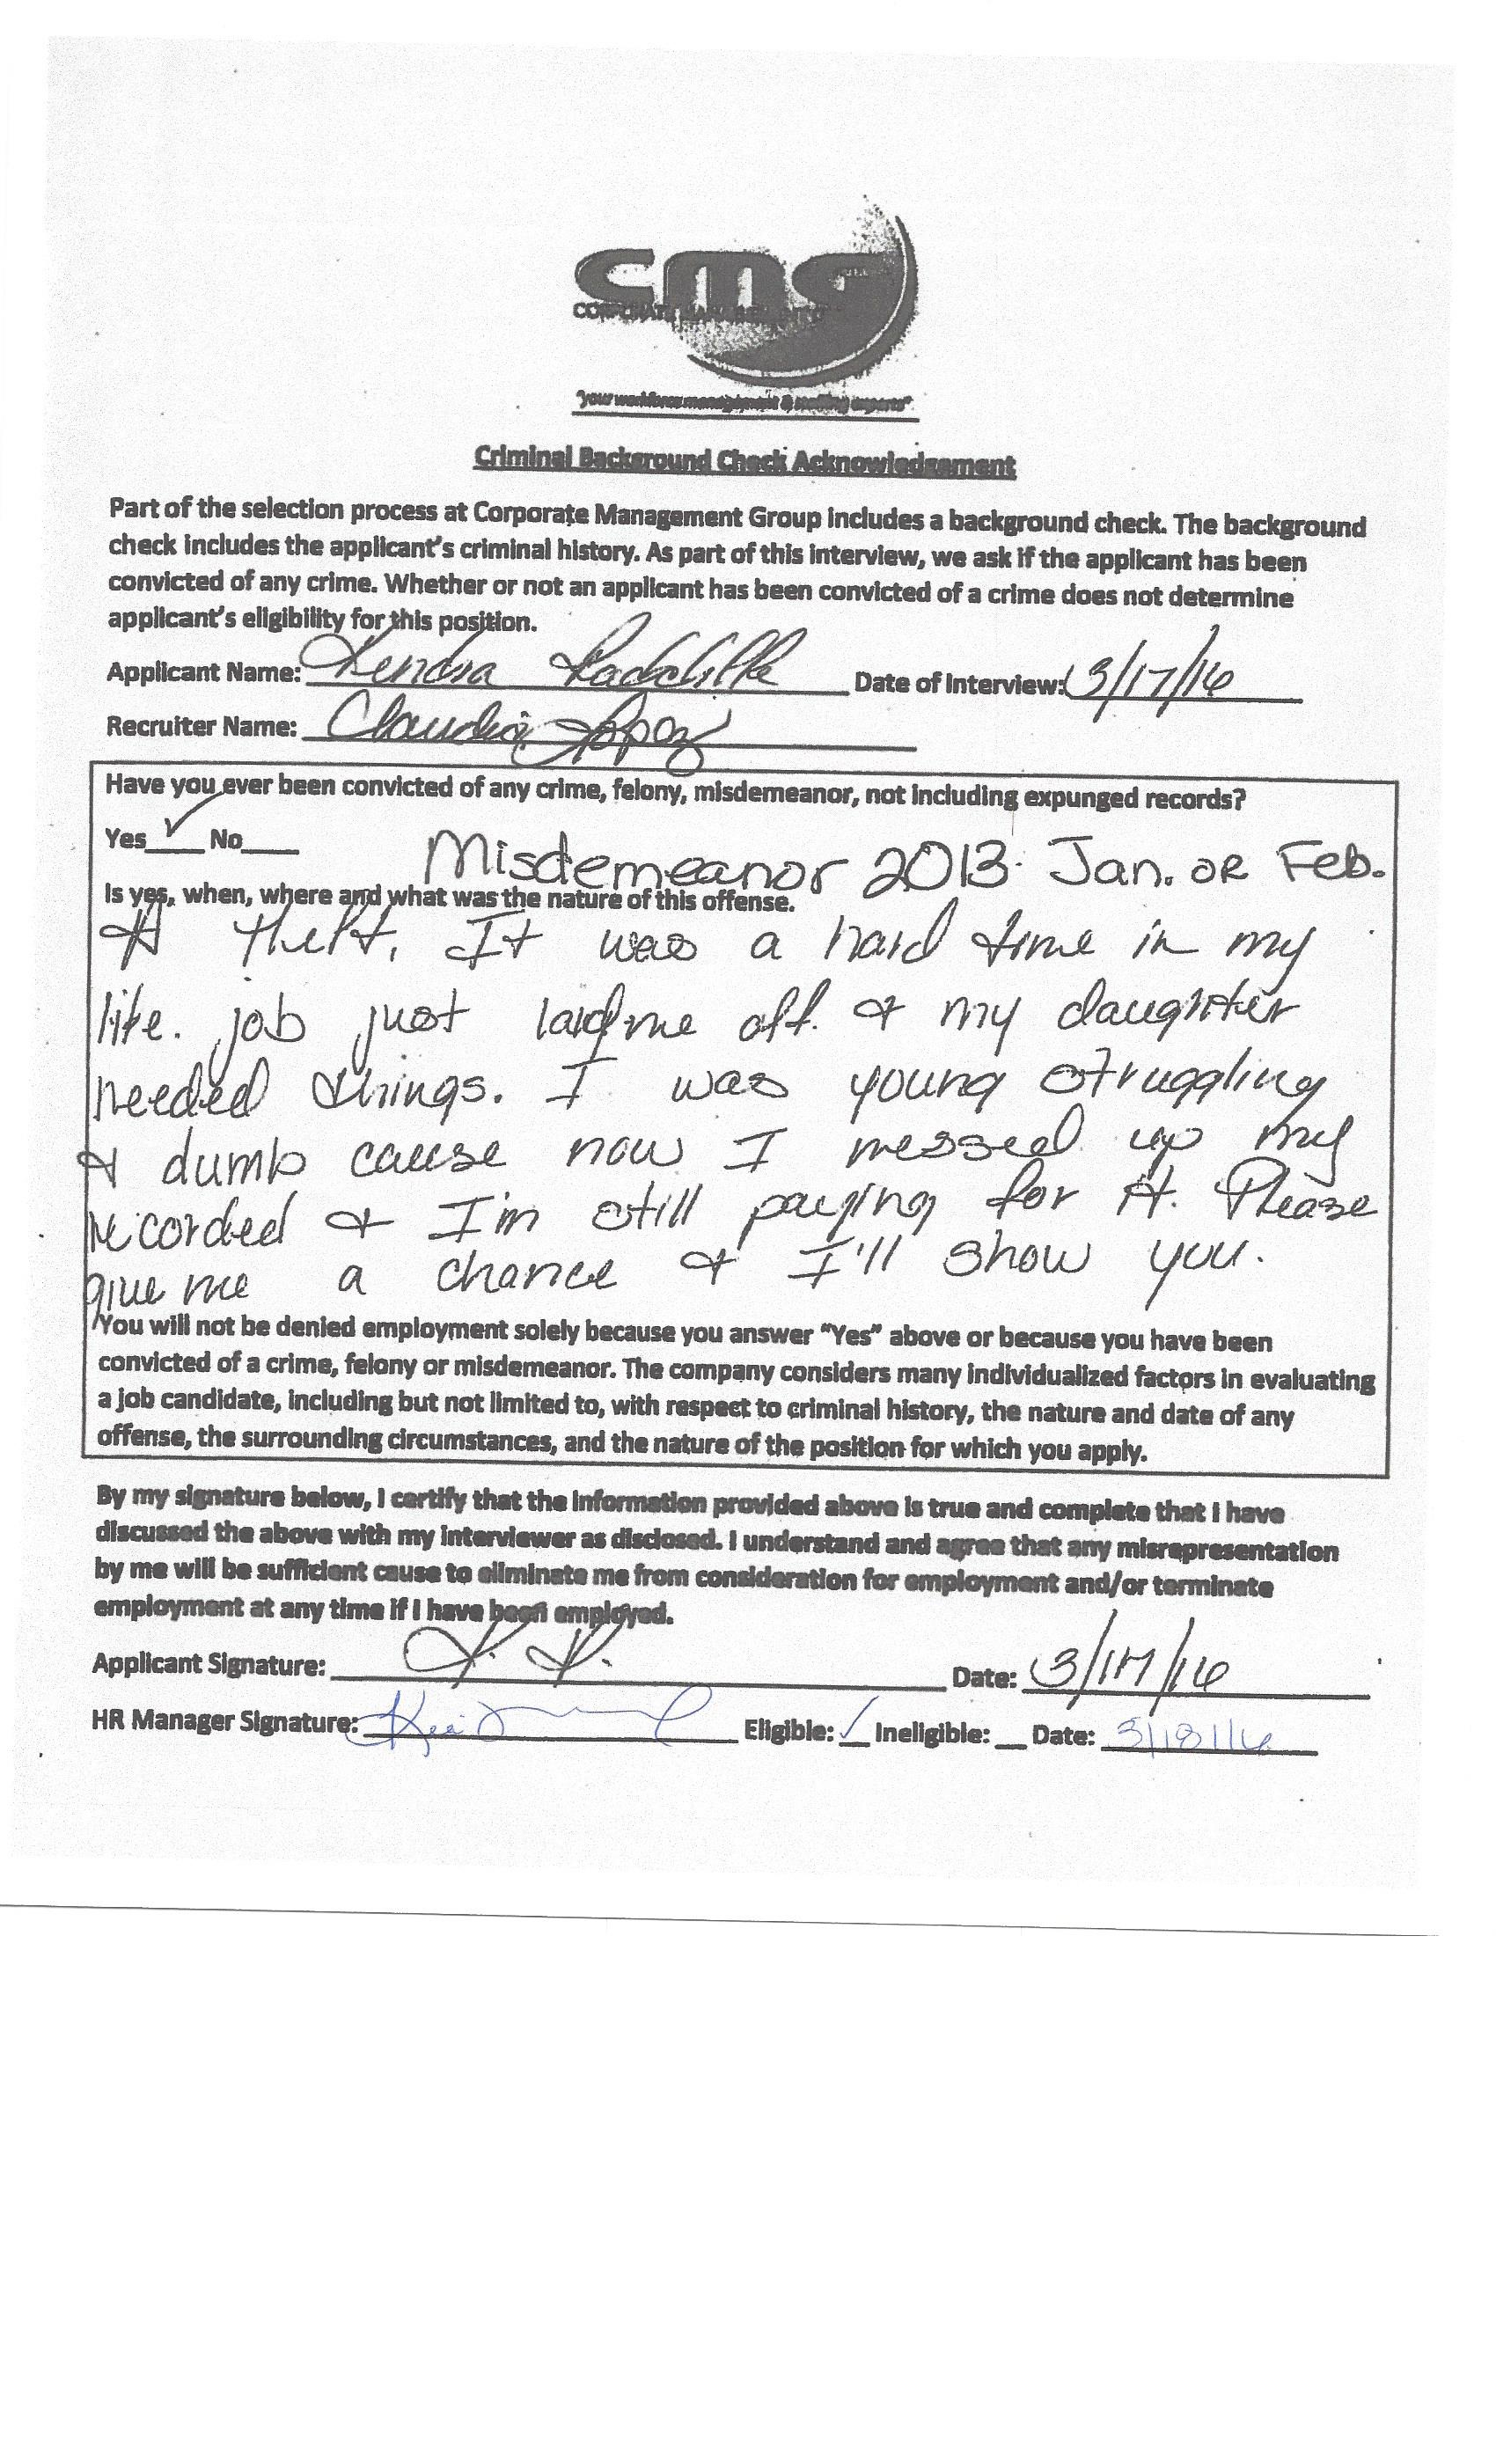 cmg
CORPORATE MANAGEMENT
"your workforce management & staffing experts"
Criminal Background Check Acknowledgement
Part of the selection process at Corporate Management Group includes a background check. The background
check includes the applicant's criminal history. As part of this interview, we ask if the applicant has been
convicted of any crime. Whether or not an applicant has been convicted of a crime does not determine
applicant's eligibility for this position.
Applicant Name: Kendra Radcliffe Date of Interview: 3/17/16
Recruiter Name: Claudia Lopez
Have you ever been convicted of any crime, felony, misdemeanor, not including expunged records?
Yes ✓ No
Misdemeanor 2013. Jan. OR Feb.
Is yes, when, where and what was the nature of this offense.
A theft, It was a hard time in my
life. job just laid me off. & my daughter
needed things. I was young struggling
& dumb cause now I messed up my
recorded & I'm still paying for it. Please
give me a chance & I'll show you.
You will not be denied employment solely because you answer "Yes" above or because you have been
convicted of a crime, felony or misdemeanor. The company considers many individualized factors in evaluating
a job candidate, including but not limited to, with respect to criminal history, the nature and date of any
offense, the surrounding circumstances, and the nature of the position for which you apply.
By my signature below, I certify that the information provided above is true and complete that I have
discussed the above with my interviewer as disclosed. I understand and agree that any misrepresentation
by me will be sufficient cause to eliminate me from consideration for employment and/or terminate
employment at any time if I have been employed.
Applicant Signature: K. R. Date: 3/17/16
HR Manager Signature: Eligible: ✓ Ineligible: __ Date: 3/18/16